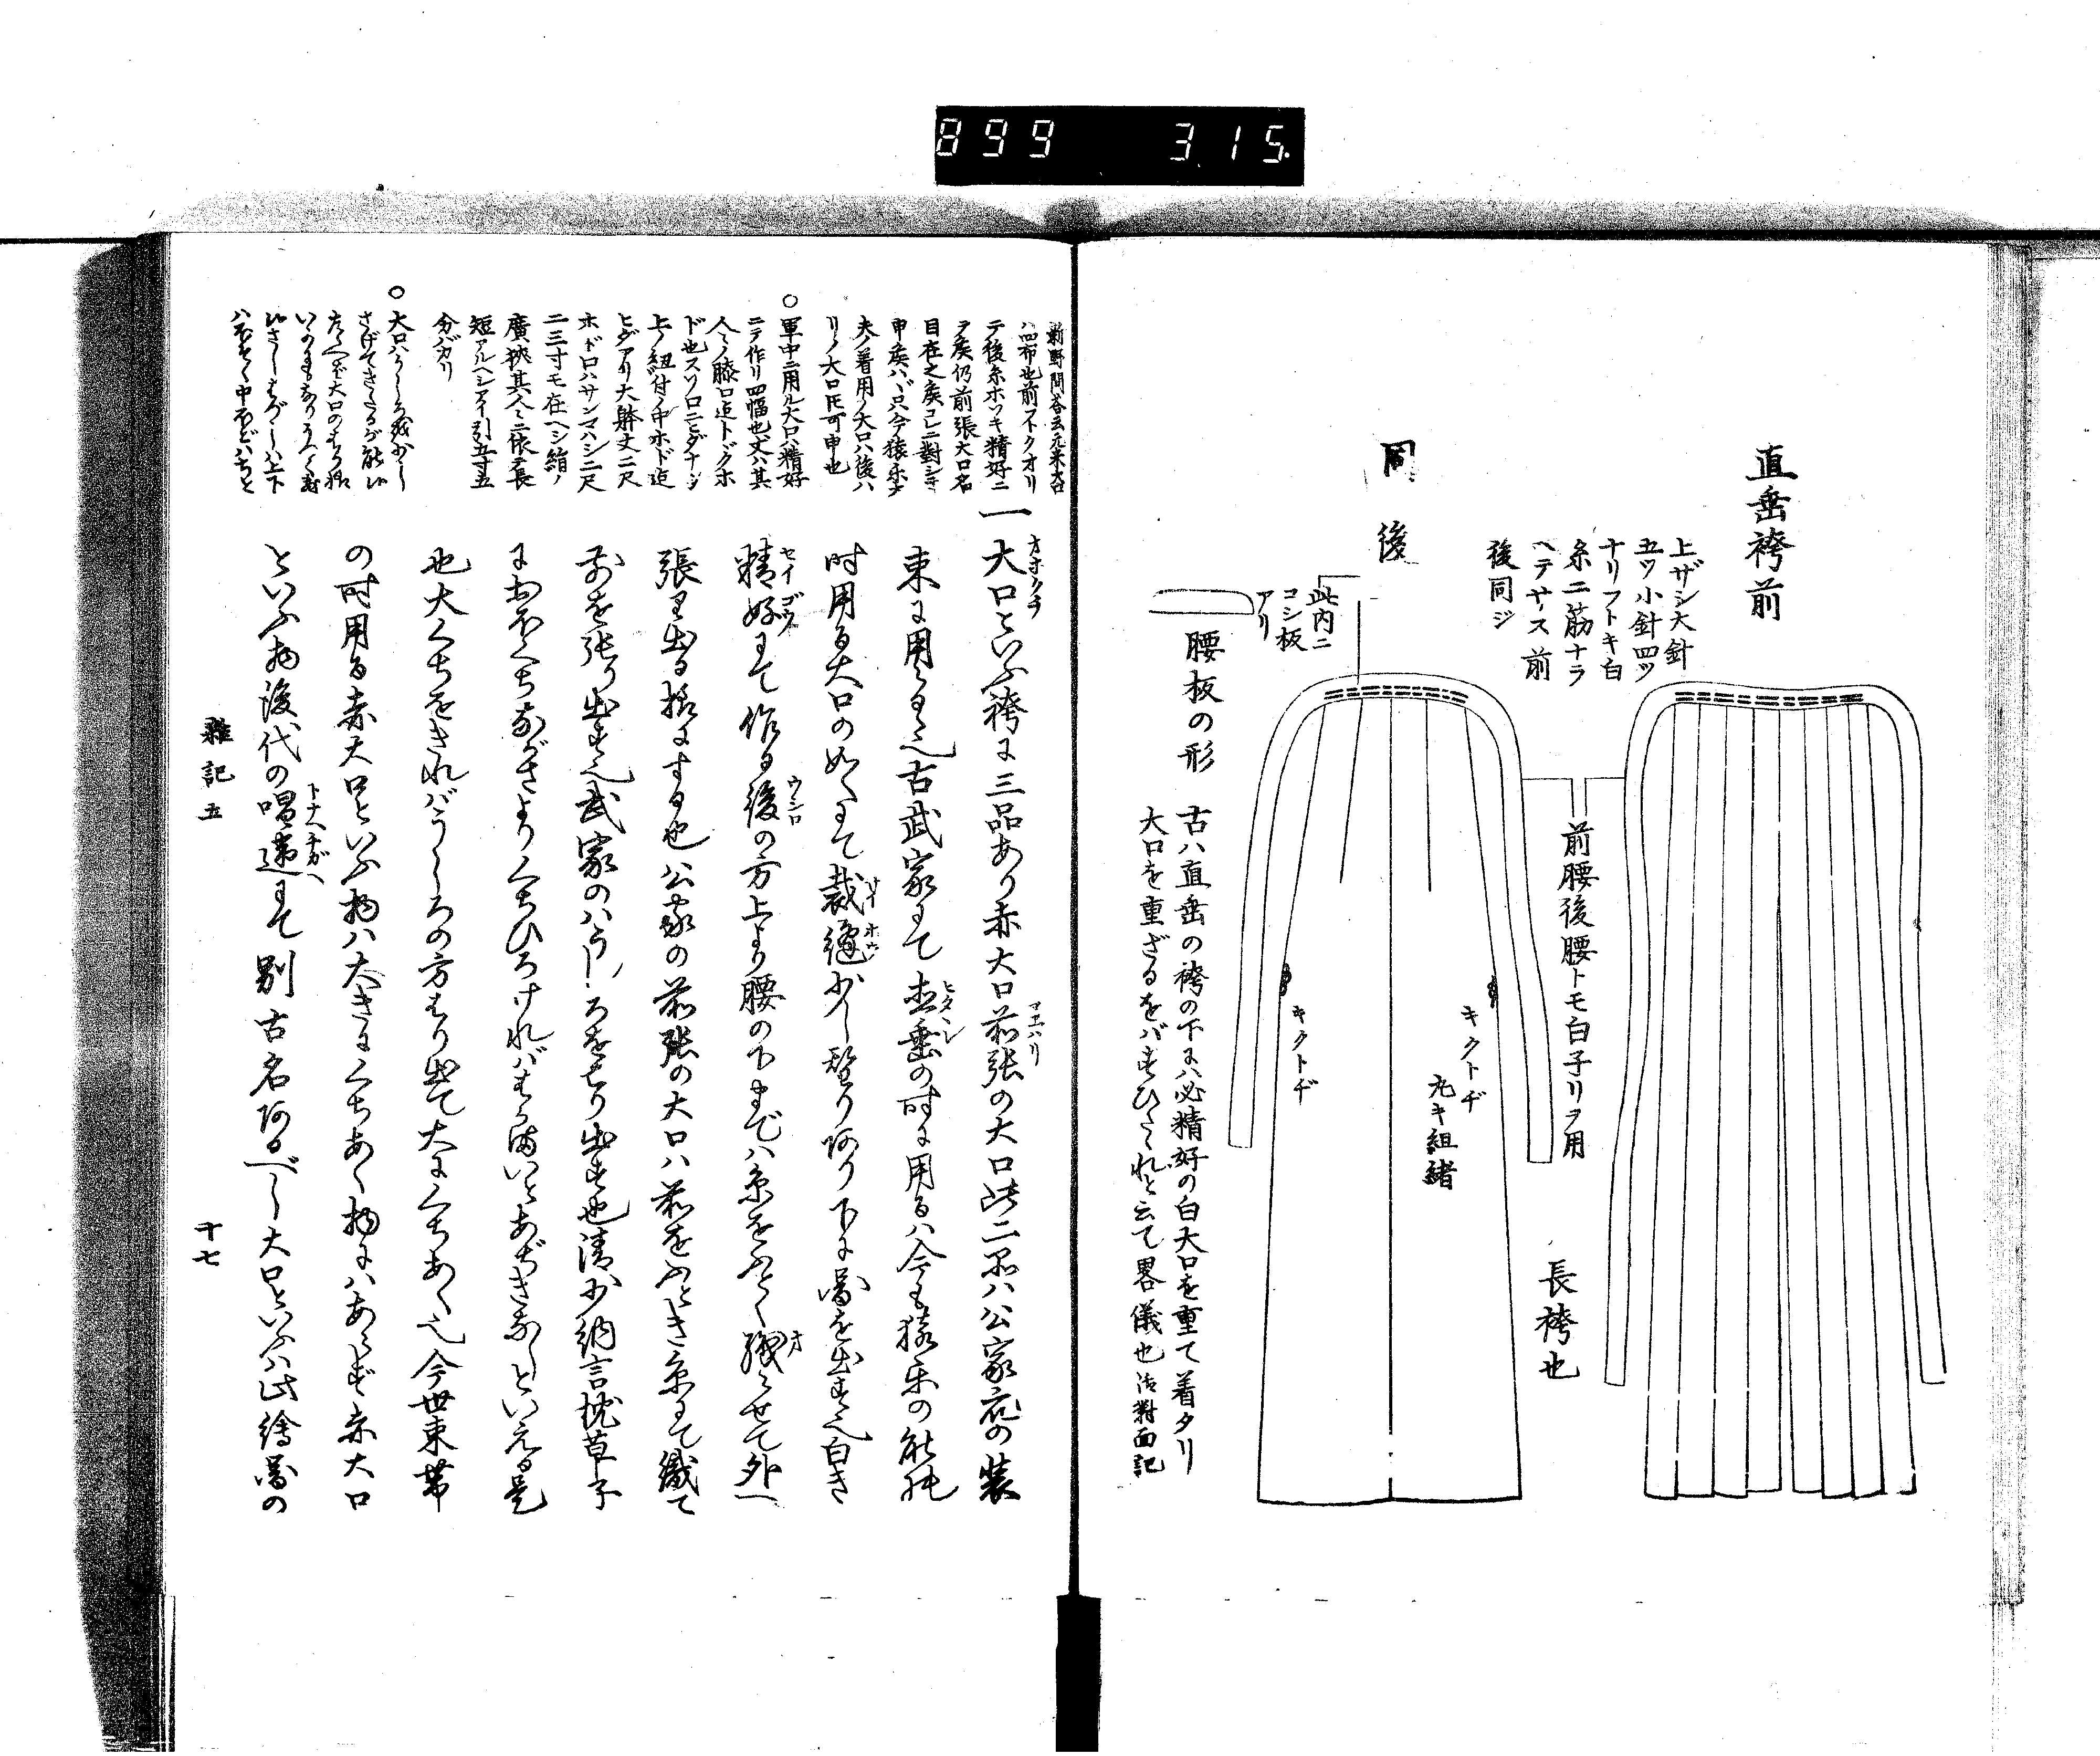 899 315.
直垂袴前
上ザシ大針
五ツ小針四ツ
ナリフトキ白
糸二筋ナラ
ヘテサス前
後同ジ
同 後
此内ニ
コシ板
アリ
腰板の形
前腰後腰トモ白子リヲ用
長袴也
キクトヂ
丸キ組緒
キクトヂ
古ハ直垂の袴の下にハ必精好の白大口を重て着タリ
大口を重ざるをバすひたれと云て畧儀也 法對面記
新野問答云元来大口
ハ四布也前フトクオリ
テ後糸ホソキ精好ニ
ヲ候仍前張大口名
目在之候コレニ對シ
申候ハヾ只今猿乐
夫ノ着用ノ大口ハ後ハ
リノ大口トモ可申也
○軍中ニ用ル大口ハ精好
ニテ作リ四幅也丈ハ其
人ミノ膝口迄トドクホ
ド也スソロニヒダナシ
上ノ紐付ノ中ホド迄
ヒダアリ大躰丈二尺
ホドロハサンマハシ二尺
二三寸モ在ヘシ絹ノ
廣狹其人ミニ依テ長
短アルヘシアイ引五寸五
分バカリ
○大口ハうしろ少し
さげてきたるが能
一大口といふ袴に三品あり赤大口前張の大口此二品ハ公家衆の装
束に用らるゝ也古武家にて直垂の時に用るハ今も猿乐の能の
時用る大口の如くにて裁縫少し替り阿り下に圖を出す也白き
精好にて作る後の方上より腰の下までハ糸をふとく織らせて外へ
張り出る様にする也公家の前張の大口ハ前をふとき糸にて織て
前を張り出す也武家のハうしろをはり出す也清少納言枕草子
におほくちながさよりくちひろけれバさる満いとあぢきなしといえる是
也大くちをきれバうしろの方はり出て大にくちあく也今世束帯
の時用る赤大口といふ物ハ大きにくちあく物にハあらず赤大口
といふ物後代の唱違にて別古名阿るべし大口といふハ此繪圖の
雑記五
十七